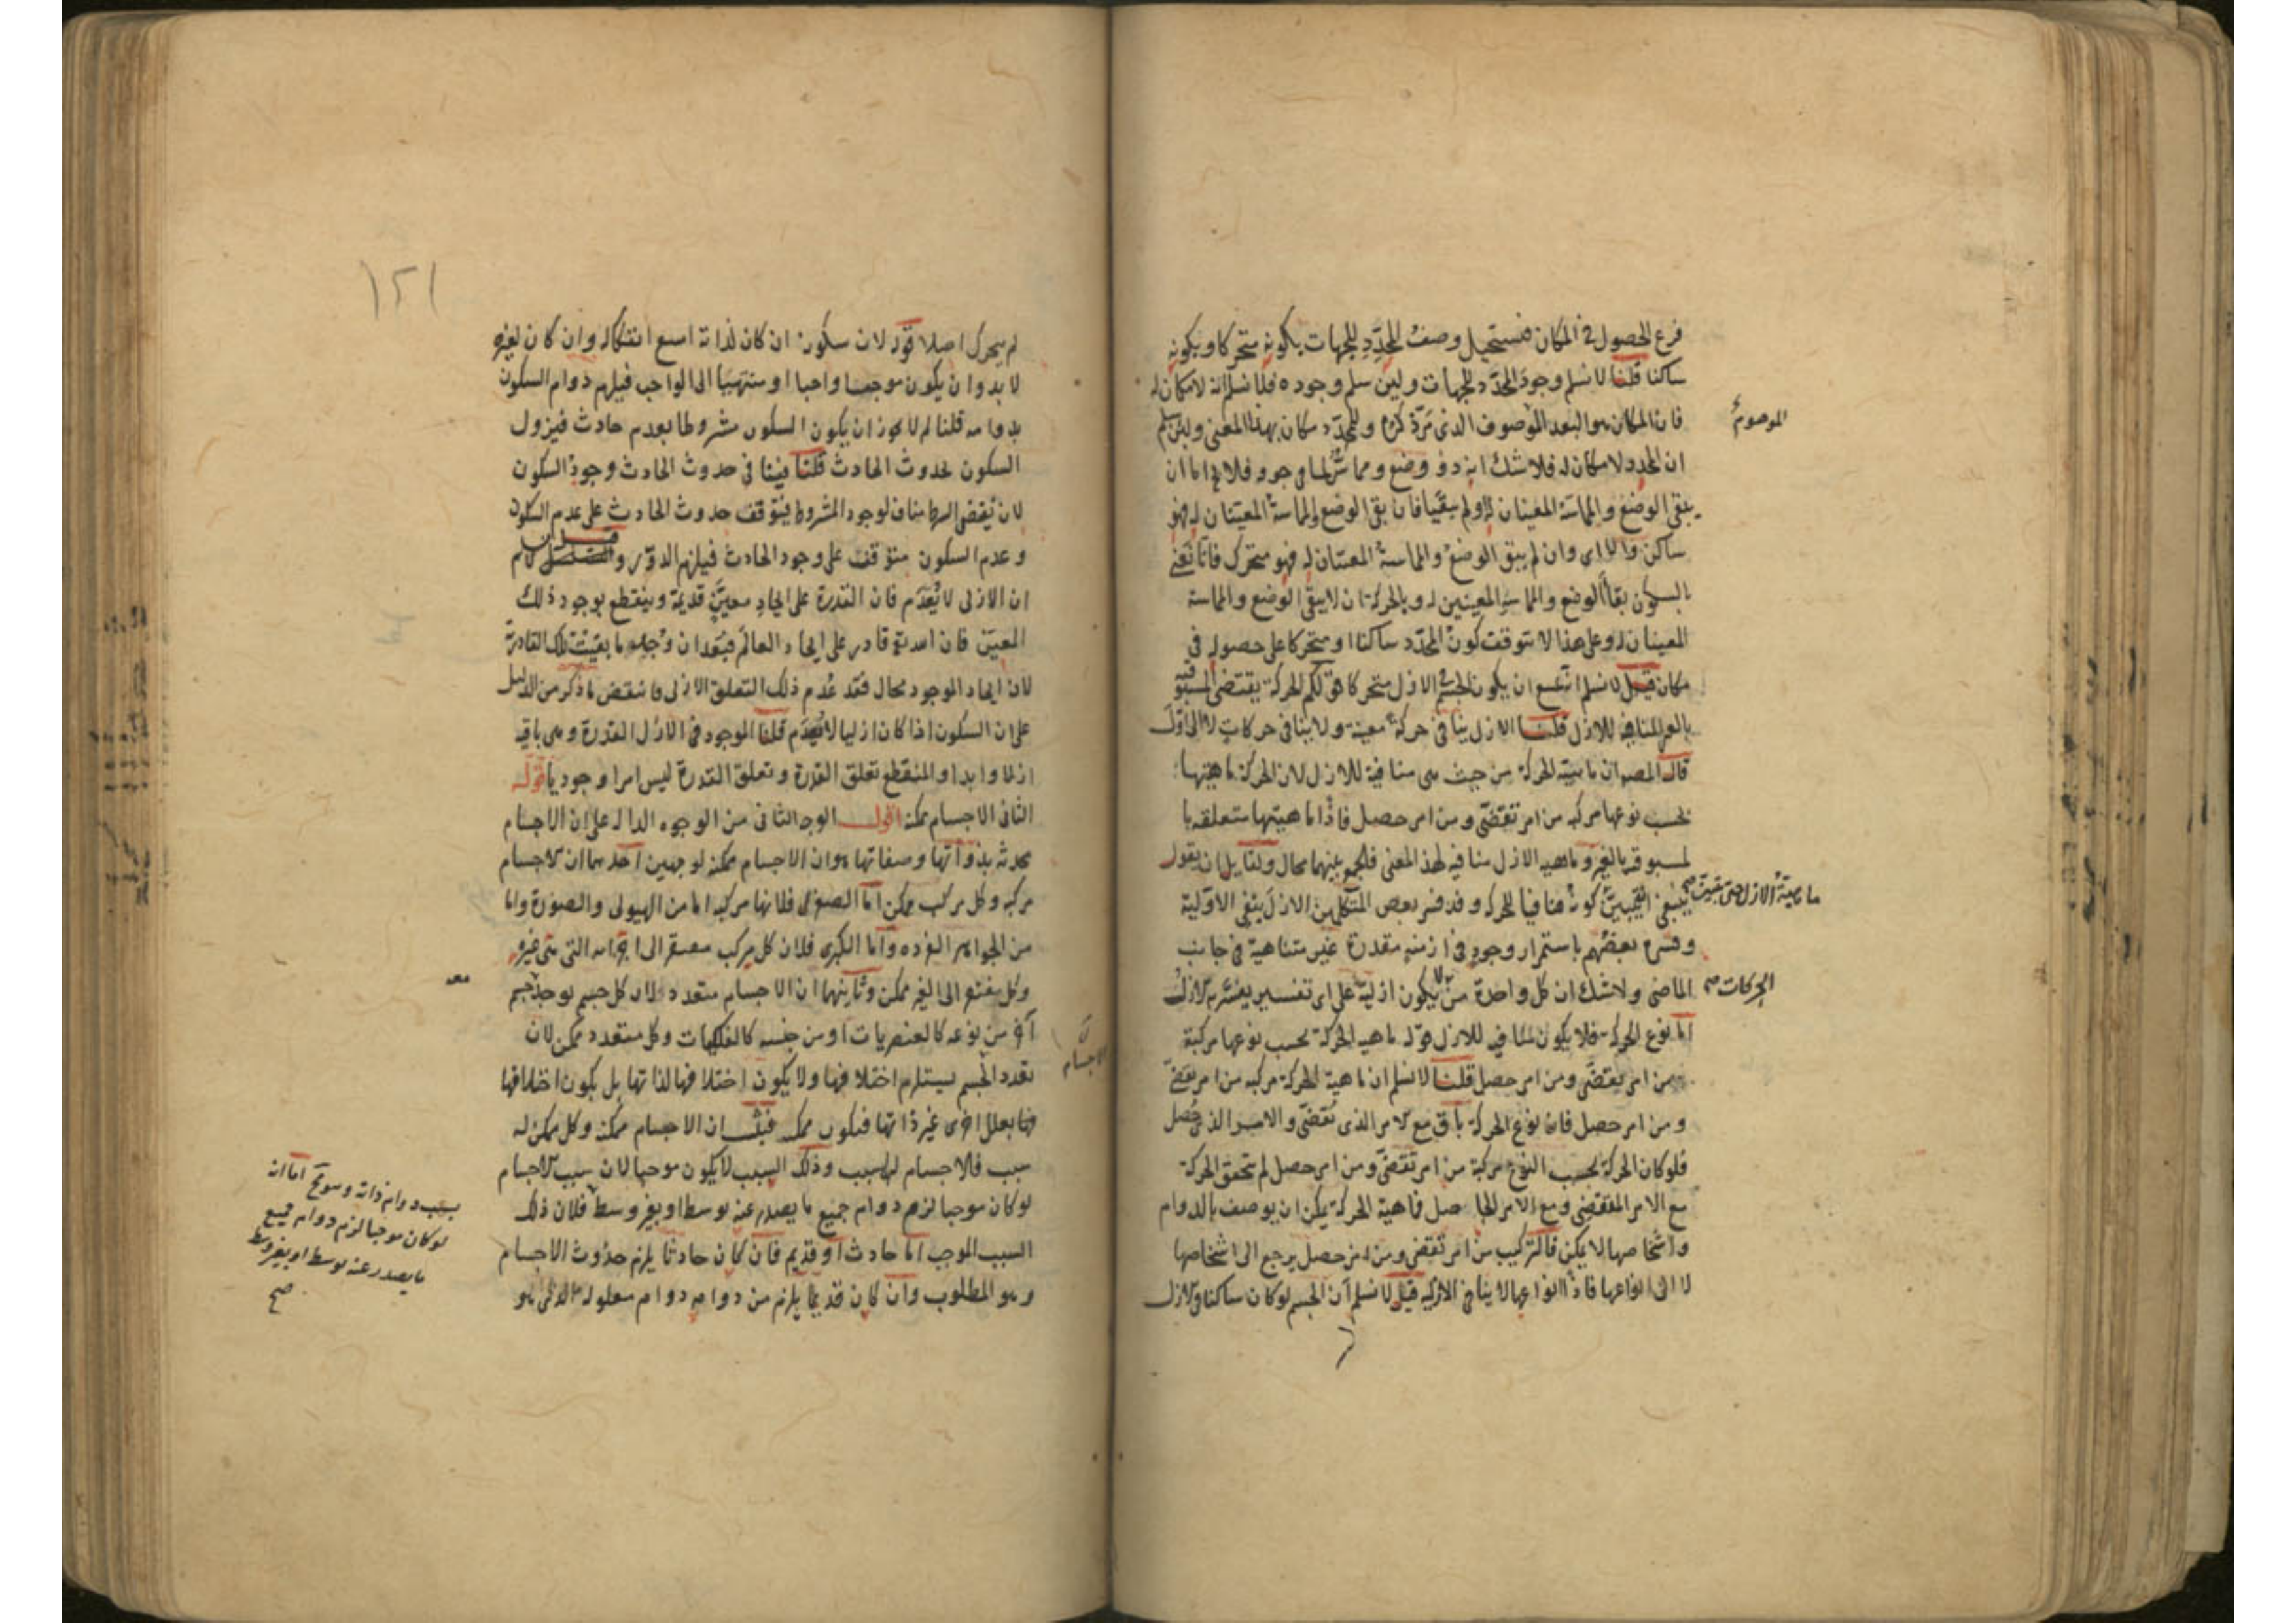 فرع الحصول في المكان فنستحيل وصف المحدّد للجهات بكونه متحركا وبكونه
ساكنا قلنا لا نسلم وجود المحدّد للجهات ولئن سلم وجوده فلا نسلم انه لا مكان له
فان المكان هو البعد الموصوف الذى مرّ ذكره وللمحدّد مكان بهذا المعنى ولئن سلم
الموهوم
ان المحدد لا مكان له فلا شك انه ذو وضع ومماسة لما فى جوفه فلا يخ اما ان
يبقى الوضع والمماسة المعينان له او لم يبقيا فان بقى الوضع والمماسة المعينان له فهو
ساكن والا اى وان لم يبق الوضع والمماسة المعينان له فهو متحرك فانا نعنى
بالسكون بقاء الوضع والمماسة المعينين له وبالحركة ان لا يبقى الوضع والمماسة
المعينان له وعلى هذا لا يتوقف كون المحدّد ساكنا او متحركا على حصوله فى
مكان قيل لا نسلم انه يمتنع ان يكون الجسم فى الازل متحركا قولكم الحركة يقتضى المسبوقية
بالغير المنافية للازل قلنا الازل ينافى حركة معينة ولا ينافى حركات لا الى اول
قال المصـ ان ماهية الحركة من حيث هى منافية للازل لان الحركة ماهيتها
بحسب نوعها مركبة من امر تقضّى ومن امر حصل فاذا ماهيتها متعلقة با
لمسبوقية بالغير وماهية الازل منافية لهذا المعنى فالجمع بينهما محال ولقائل ان يقول
ينبغى ان يبين كونها منافيا للحركة وقد فسر بعض المتكلمين الازل بنفى الاولية
ماهية الازل حتى يتبين صح
وفسره بعضهم باستمرار وجوده فى ازمنة مقدرة غير متناهية فى جانب
الماضى ولا شك ان كل واحدة من لا يكون ازلية على اى تفسير يفسر به الازل
الحركات صح
اما نوع الحركة فلا يكون منافيه للازل قوله ماهية الحركة بحسب نوعها مركبة
من امر يقتضى ومن امر حصل قلنا لا نسلم ان ماهية الحركة مركبة من امر تقضّى
ومن امر حصل فان نوع الحركة باق مع الامر الذى تقضّى والامر الذى حصل
فلو كان الحركة بحسب النوع مركبة من امر تقضّى ومن امر حصل لم تتحقق الحركة
مع الامر المنقضى ومع الامر الحاصل فماهية الحركة يمكن ان يوصف بالدوام
واشخاصها لا يمكن فالتركيب من امر تقضى ومن امر حصل يرجع الى اشخاصها
لا الى انواعها فاذا انواعها لا ينافى الازلية قيل لا نسلم ان الجسم لو كان ساكنا فى الازل
١٢١
لم يتحرك اصلا قوله لان سكونه ان كان لذاته امتنع انفكاكه وان كان لغيره
لا بد وان يكون موجبها واجبا او منتهيا الى الواجب فيلزم دوام السكون
بدوامه قلنا لم لا يجوز ان يكون السكون مشروطا بعدم حادث فيزول
السكون بحدوث الحادث قلنا ينافى حدوث الحادث وجود السكون
لان نقيض الشرط مناف لوجود المشروط فيتوقف حدوث الحادث على عدم السكون
وعدم السكون متوقف على وجود الحادث فيلزم الدور قيل لا نسلم
ان الازلى لا يُعدَم فان القدرة على ايجاد معيّن قديمة وينقطع بوجود ذلك
المعيّن فان الله تع قادر على ايجاد العالم فبعد ان وجده ما بقيت تلك القادرية
لان ايجاد الموجود محال فقد عُدِم ذلك التعلق الازلى فانتقض ما ذكر من الدليل
على ان السكون اذا كان ازليا لا يُعدَم قلنا الموجود فى الازل القدرة وهى باقية
ازلا وابدا والمنقطع تعلق القدرة وتعلق القدرة ليس امرا وجوديا قوله
الثانى الاجسام ممكنة اقول الوجه الثانى من الوجوه الدالة على ان الاجسام
محدثة بذواتها وصفاتها هو ان الاجسام ممكنة لوجهين احدهما ان الاجسام
مركبة وكل مركب ممكن اما الصغرى فلانها مركبة اما من الهيولى والصورة واما
من الجواهر الفردة واما الكبرى فلان كل مركب مفتقر الى اجزائه التى هى غيره
وكل مفتقر الى الغير ممكن وثانيهما ان الاجسام متعددة لان كل جسم يوجد جسم
معه
آخر من نوعه كالعنصريات او من جنسه كالفلكيات وكل متعدد ممكن لان
تعدد الجسم يستلزم اختلافها ولا يكون اختلافها لذاتها بل يكون اختلافها
الاجسام
فيها بعلل اخرى غير ذاتها فتكون ممكنة فثبت ان الاجسام ممكنة وكل ممكن له
سبب فالاجسام لها سبب وذلك السبب لا يكون موجبا لان سبب الاجسام
لو كان موجبا لزم دوام جميع ما يصدر عنه بوسط او بغير وسط فلان ذلك
السبب الموجب اما حادث او قديم فان كان حادثا يلزم حدوث الاجسام
وهو المطلوب وان كان قديما يلزم من دوامه دوام معلوله الذى هو
بسبب دوام ذاته وهو مح اما ان
لو كان موجبا لزم دوام جميع
ما يصدر عنه بوسط او بغير وسط
صح